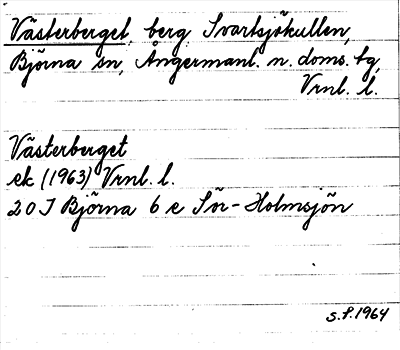 Västerberget, berg Svartsjökullen,
Björna sn, Ångermanl. n. doms. tg,
Vrnl. l.
Västerberget
ek (1963) Vrnl. l.
20 J Björna 6 e Sör-Holmsjön
S.F. 1964